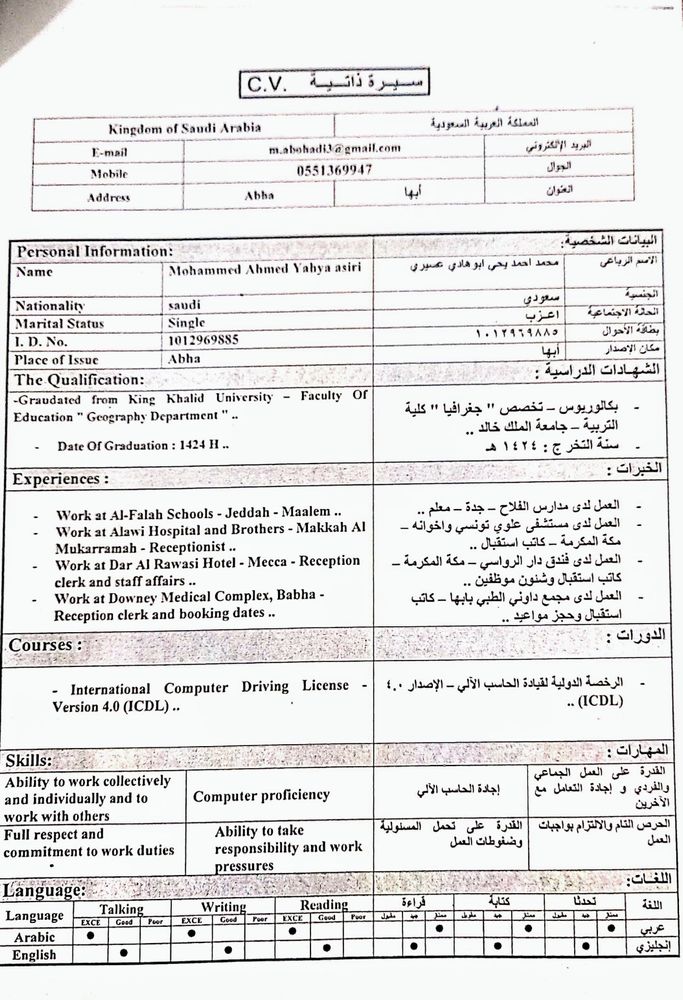 C.V. سيرة ذاتية
Kingdom of Saudi Arabia المملكة العربية السعودية
E-mail m.abohadi3@gmail.com البريد الإلكتروني
Mobile 0551369947 الجوال
Address Abha أبها العنوان
Personal Information: البيانات الشخصية:
Name Mohammed Ahmed Yahya asiri محمد احمد يحي ابو هادي عسيري الاسم الرباعي
Nationality saudi سعودي الجنسية
Marital Status Single اعزب الحالة الاجتماعية
I. D. No. 1012969885 ١٠١٢٩٦٩٨٨٥ بطاقة الأحوال
Place of Issue Abha أبها مكان الاصدار
The Qualification: الشهادات الدراسية :
-Graudated from King Khalid University – Faculty Of
Education " Geography Department " ..
- Date Of Graduation : 1424 H ..
- بكالوريوس – تخصص " جغرافيا " كلية
التربية – جامعة الملك خالد ..
- سنة التخرج : ١٤٢٤ هـ
Experiences : الخبرات :
- Work at Al-Falah Schools - Jeddah - Maalem ..
- Work at Alawi Hospital and Brothers - Makkah Al
Mukarramah - Receptionist ..
- Work at Dar Al Rawasi Hotel - Mecca - Reception
clerk and staff affairs ..
- Work at Downey Medical Complex, Babha -
Reception clerk and booking dates ..
- العمل لدى مدارس الفلاح – جدة – معلم ..
- العمل لدى مستشفى علوي تونسي واخوانه –
مكة المكرمة – كاتب استقبال ..
- العمل لدى فندق دار الرواسي – مكة المكرمة –
كاتب استقبال وشئون موظفين ..
- العمل لدى مجمع داوني الطبي بابها – كاتب
استقبال وحجز مواعيد ..
Courses : الدورات :
- International Computer Driving License -
Version 4.0 (ICDL) ..
- الرخصة الدولية لقيادة الحاسب الآلي – الإصدار ٤.٠
(ICDL) ..
Skills: المهارات :
Ability to work collectively
and individually and to
work with others
Computer proficiency
إجادة الحاسب الآلي
القدرة على العمل الجماعي
والفردي و إجادة التعامل مع
الآخرين
Full respect and
commitment to work duties
Ability to take
responsibility and work
pressures
القدرة على تحمل المسئولية
وضغوطات العمل
الحرص التام والالتزام بواجبات
العمل
Language: اللغات:
Language Talking Writing Reading قراءة كتابة تحدثا اللغة
EXCE Good Poor EXCE Good Poor EXCE Good Poor مقبول جيد ممتاز مقبول جيد ممتاز مقبول جيد ممتاز
Arabic ● ● ● ● ● ● عربي
English ● ● ● ● ● ● إنجليزي